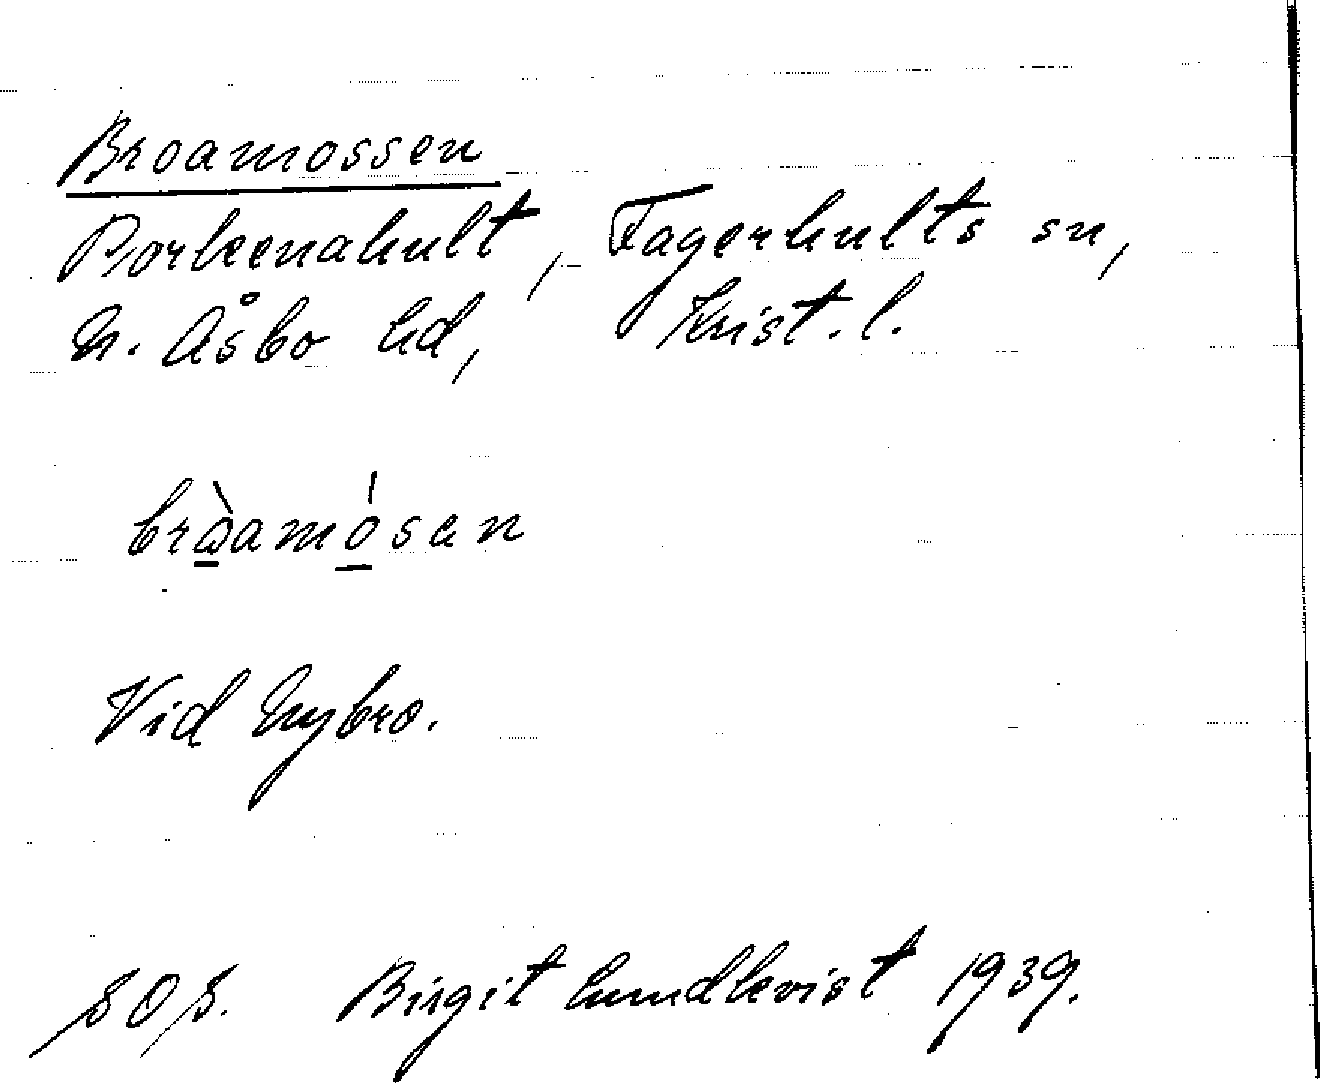 Broamossen
Porkenahult, Fagerhults sn,
N. Åsbo hd, Krist. l.
bròamósen
Vid Nybro.
SOS. Birgit Lundkvist 1939.